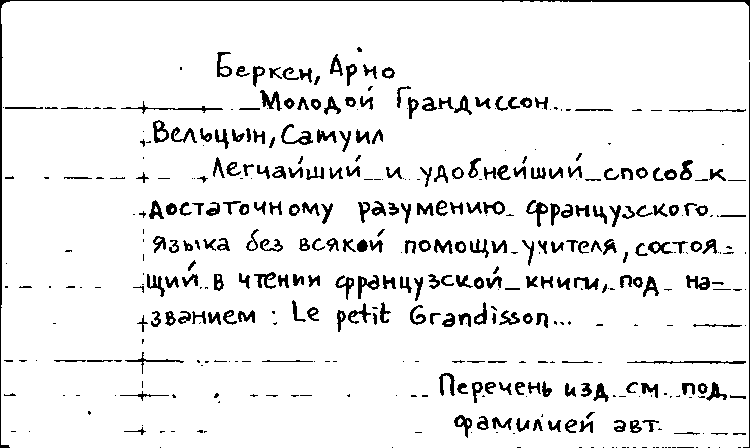 Беркен, Арно
Молодой Грандиссон
Вельцын, Самуил
Легчайший и удобнейший способ к
достаточному разумению французского
языка без всякой помощи учителя, состоя-
щий в чтении французской книги, под на-
званием: Le petit Grandisson...
Перечень изд. см. под
фамилией авт.